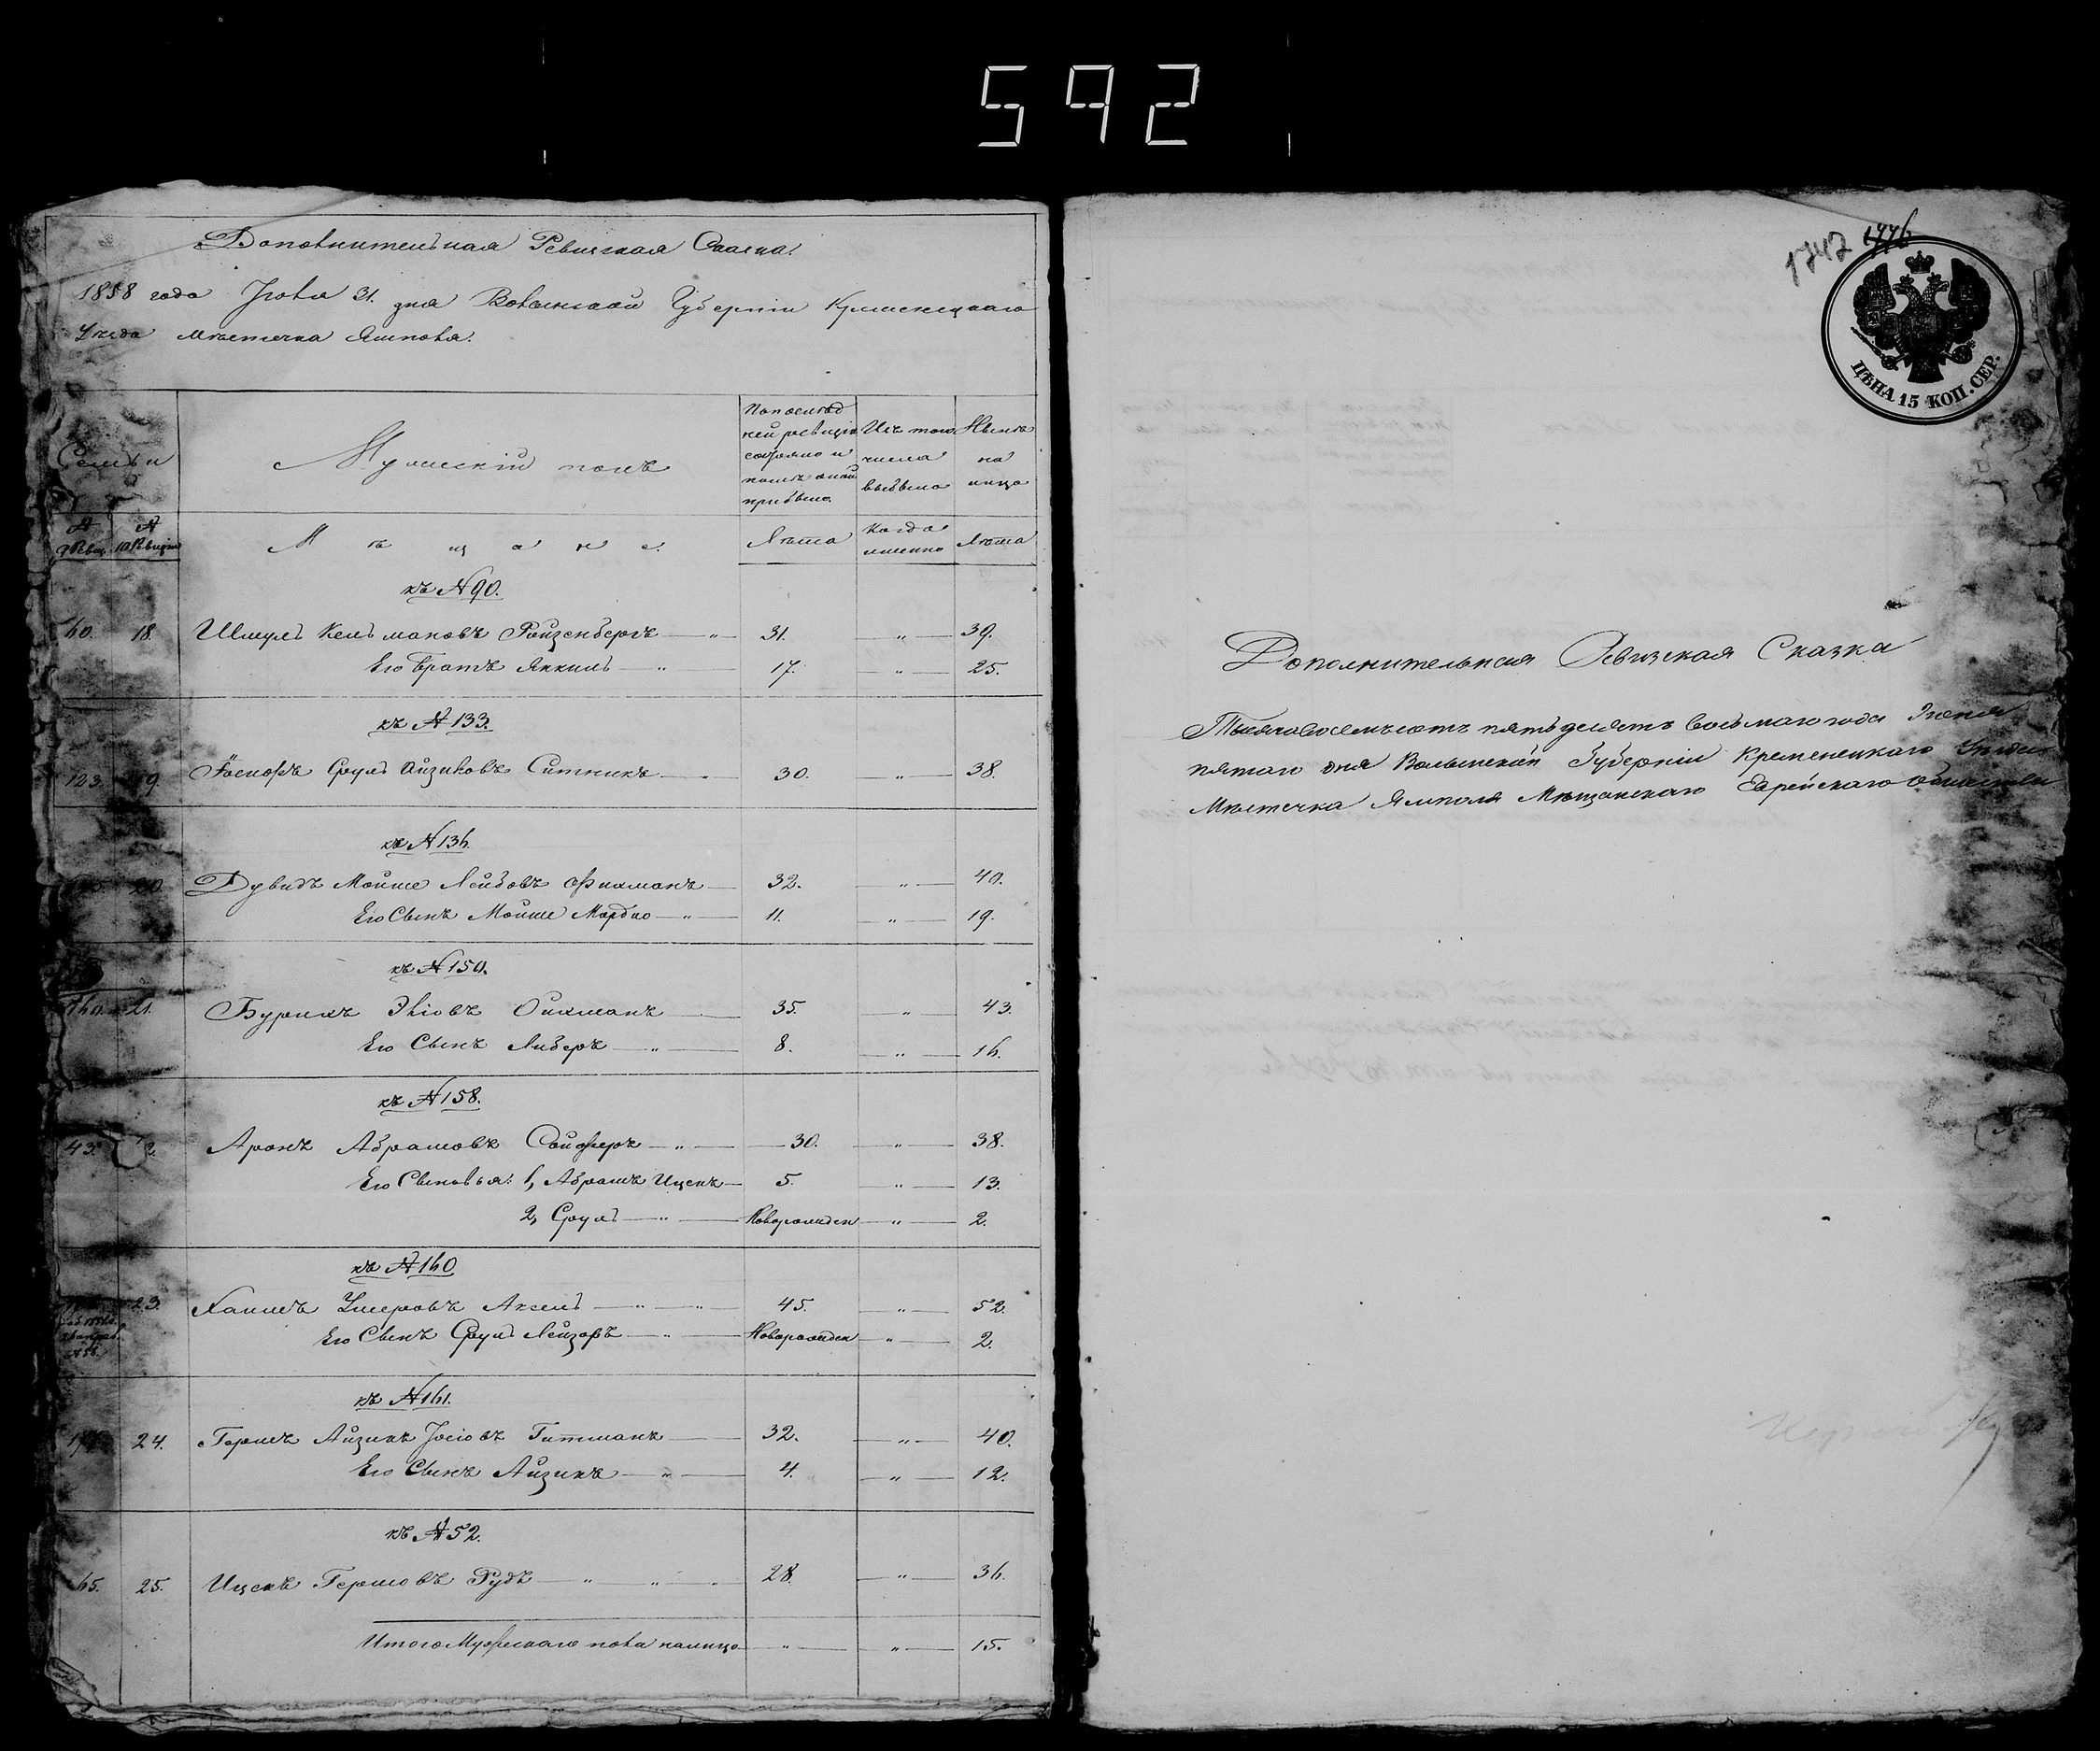 592
Дополнительная Ревизская Сказка.
1858 года Іюля 31. дня Волынской Губерніи Кременецкаго
Уѣзда мѣстечка Ямполя.
Семьи
Мужескій полъ
По послѣд
ней ревизіи
состояло и
послѣ оной
прибыло.
Изъ того
числа
выбыло
Нынѣ
на
лицо
№ 9 Ревиз. № 10 Ревизіи
М ѣ щ а н е.
Лѣта
Когда
именно
Лѣта
къ № 90.
60. 18. Шмуль Кельмановъ Ройзенбергъ — „ — 31. — „ — 39.
Его Братъ Янкиль — „ — 17. — „ — 25.
къ № 133.
123. 19. Іосифъ Сруль Айзиковъ Ситникъ — 30. — „ — 38.
къ № 136.
20. Дувидъ Мойше Лейбовъ Фикманъ — 32. — „ — 40.
Его Сынъ Мойше Мордко — „ — 11. — „ — 19.
къ № 150.
21. Бурихъ Эліовъ Фикманъ — 35. — „ — 43.
Его Сынъ Либеръ — „ — 8. — „ — 16.
къ № 158.
43. 22. Аронъ Абрамовъ Сойферъ — „ — 30. — „ — 38.
Его Сыновья: 1, Абрамъ Ицекъ — 5. — „ — 13.
2, Сруль — „ — Новорожден — „ — 2.
къ № 160
23. Хаимъ Умеровъ Аксель — „ — „ 45. — „ — 52.
Его Сынъ Сруль Лейзоръ — „ — Новорожден — „ — 2.
къ № 161.
24. Гершъ Айзикъ Іосіовъ Гитманъ — 32. — „ — 40.
Его Сынъ Айзикъ — „ — 4. — „ — 12.
къ № 52.
65. 25. Ицекъ Гершовъ Рудъ — „ — „ — 28. — „ — 36.
Итого Мужескаго пола налицо — „ — „ — 15.
1747 1776
ЦѢНА 15 КОП. СЕР.
Дополнительная Ревизская Сказка
Тысяча восемьсотъ пятьдесятъ восьмаго года Іюня
пятаго дня Волынской Губерніи Кременецкаго Уѣзда
Мѣстечка Ямполя Мѣщанскаго Еврейскаго Общества